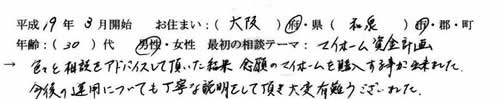 平成19年3月開始 お住まい:(大阪)府・県(和泉)市・郡・町
年齢:(30)代 男性・女性 最初の相談テーマ:マイホーム資金計画
→ 色々と相談をアドバイスして頂いた結果 念願のマイホームを購入する事が出来ました。
今後の運用についても丁寧な説明をして頂き大変有難うございました。